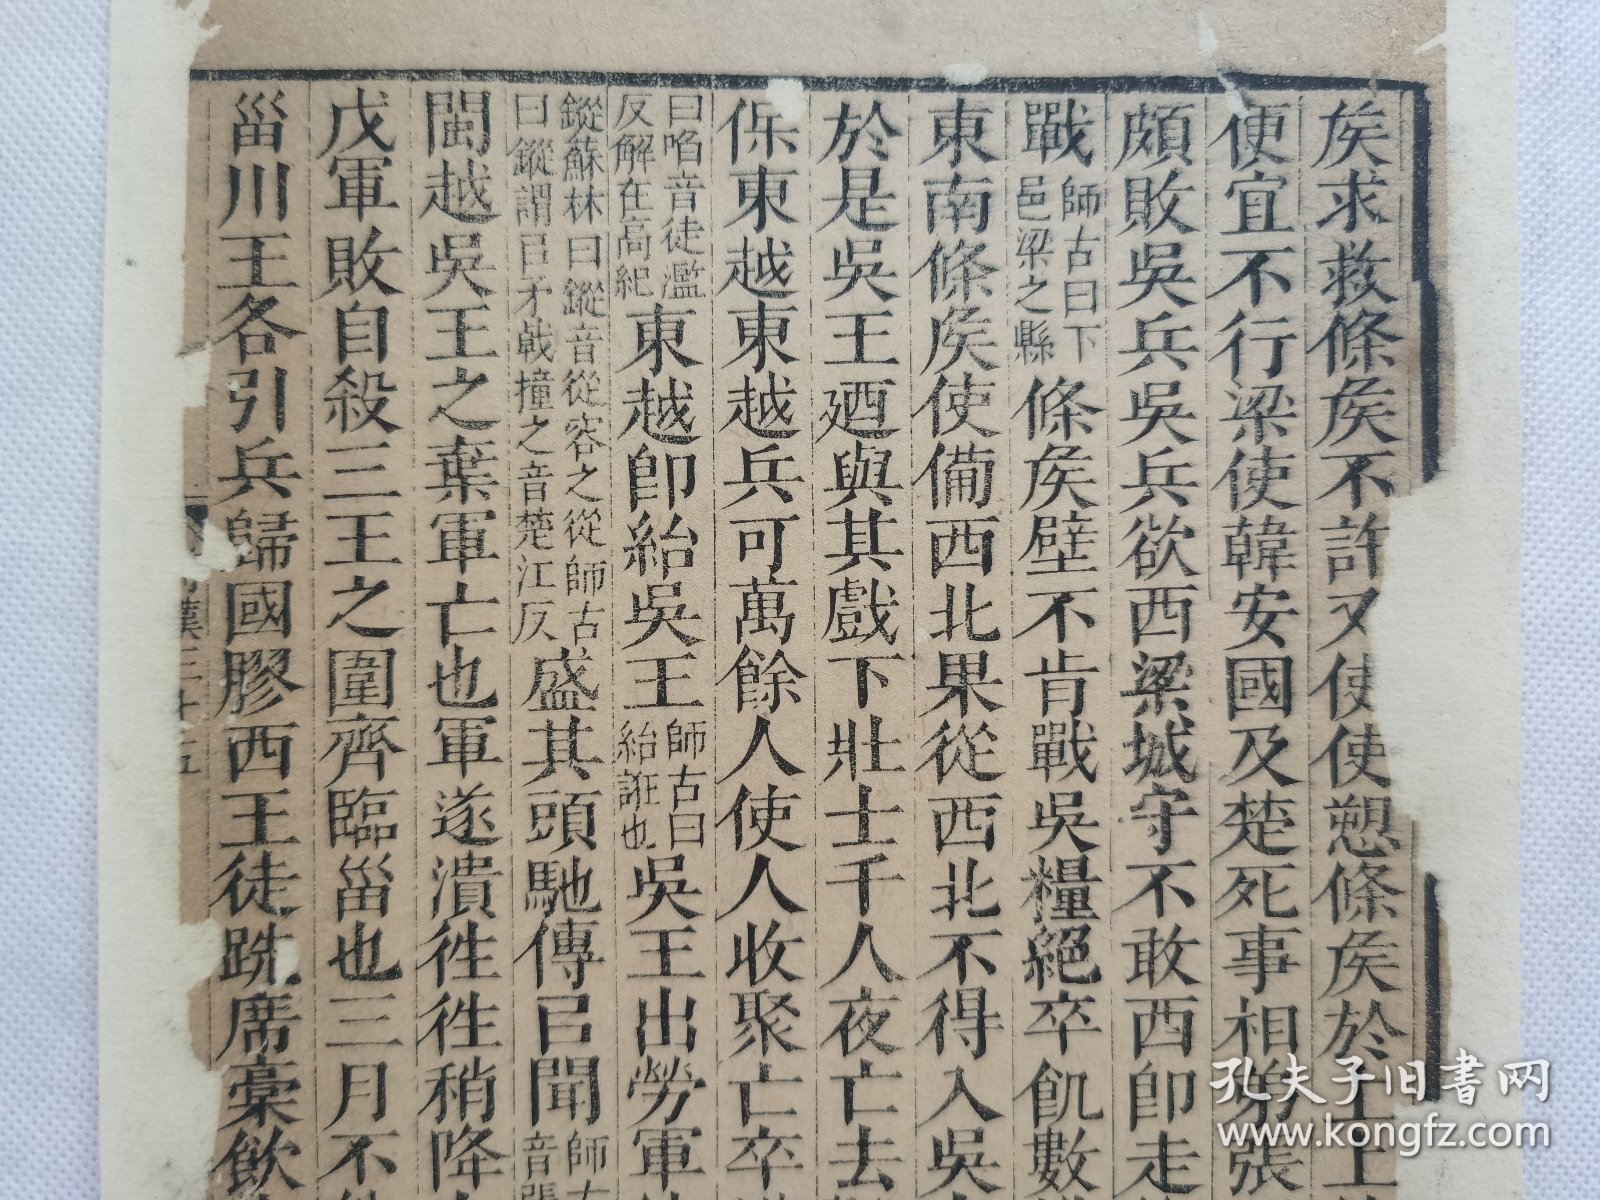 矦求救條矦不許又使使愬條矦於上上
便宜不行梁使韓安國及楚死事相弟張
頗敗吳兵吳兵欲西梁城守不敢西卽走
戰師古曰下邑梁之縣條矦壁不肯戰吳糧絕卒飢數
東南條矦使備西北果從西北不得入吳
於是吳王廼與其戲下壯士千人夜亡去
保東越東越兵可萬餘人使人收聚亡卒
曰啗音徒濫反解在高紀東越卽紿吳王師古曰紿誑也吳王出勞軍
鏦蘇林曰鏦音從容之從師古曰鏦謂㠯矛戟撞之音楚江反盛其頭馳傳㠯聞師古音張
閩越吳王之棄軍亡也軍遂潰徃徃稍降
戊軍敗自殺三王之圍齊臨甾也三月不
甾川王各引兵歸國膠西王徒跣席稾飲
漢三十五
孔夫子旧書网
www.kongfz.com